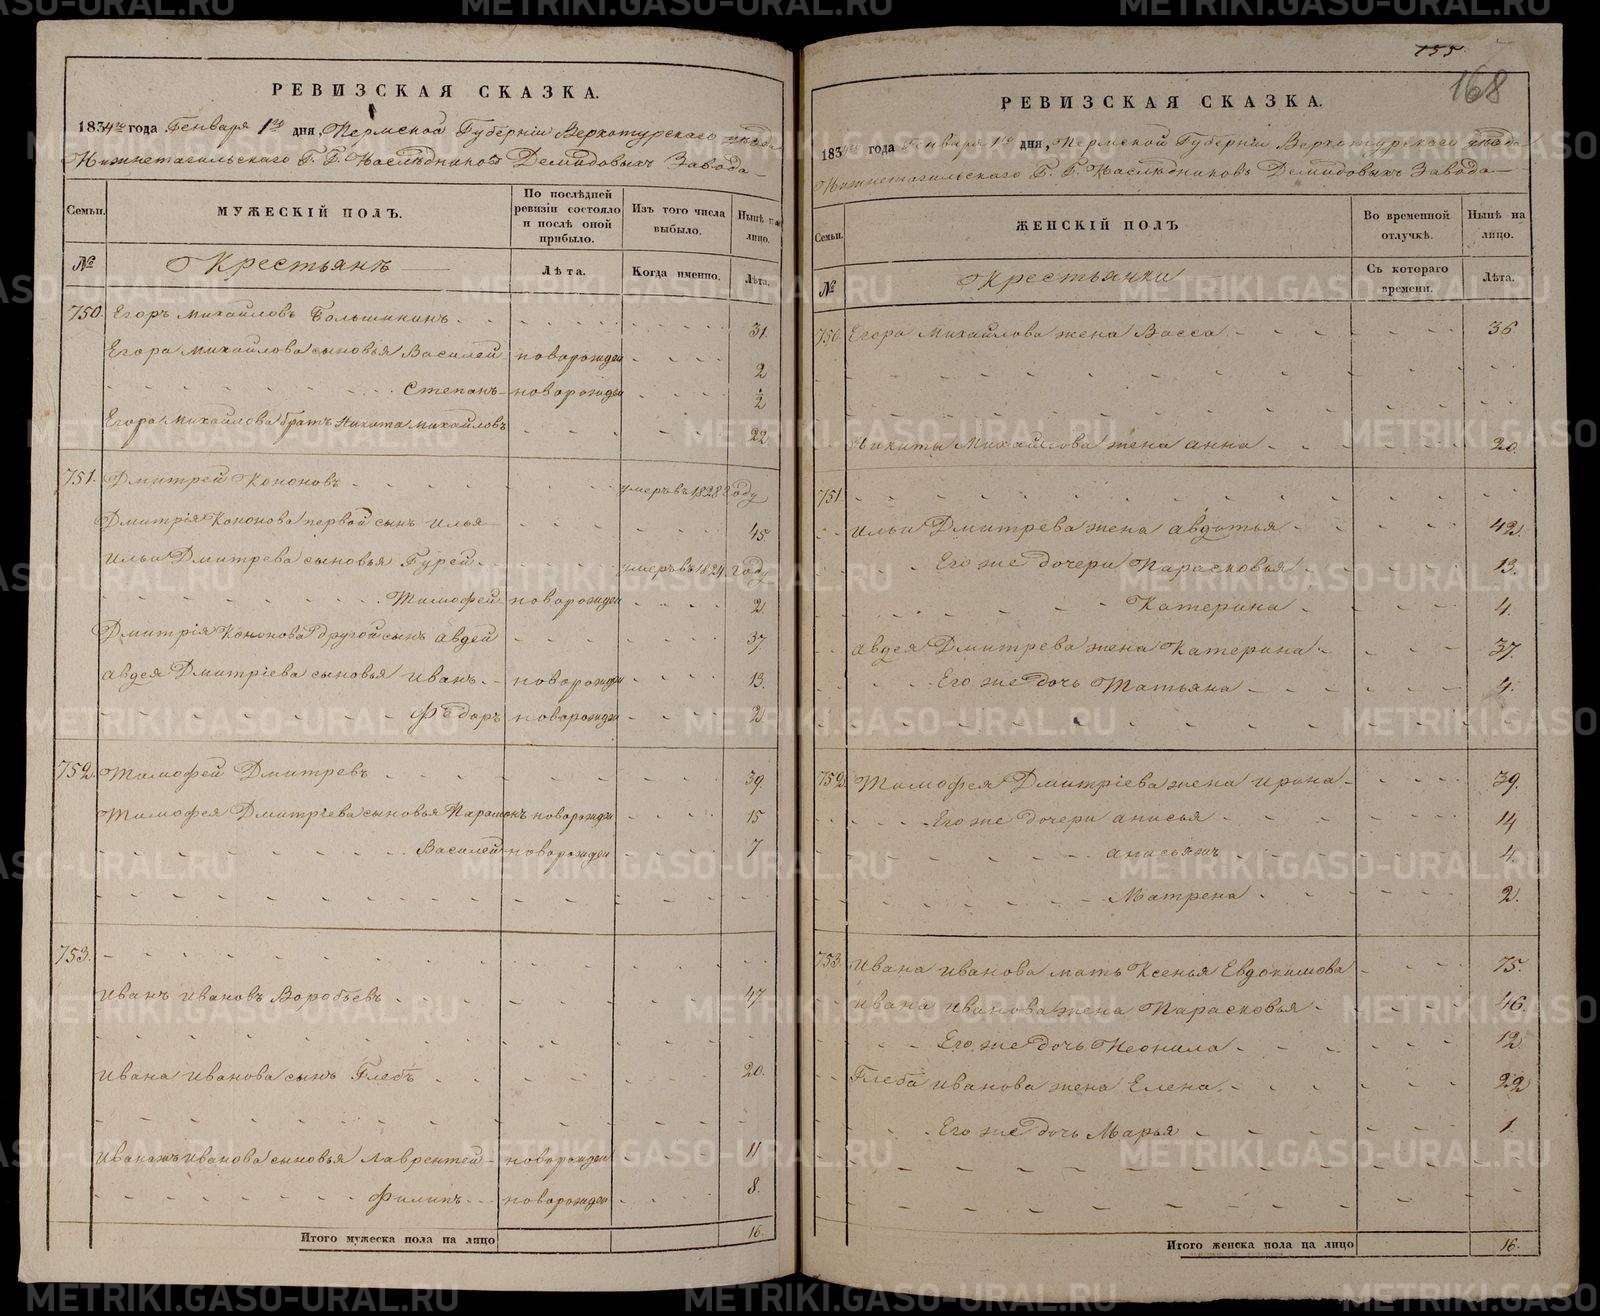 РЕВИЗСКАЯ СКАЗКА.
1834го года Генваря 1го дня, Пермской Губернiи Верхотурскаго уезда
Нижнетагильскаго Г. Г. Наследниковъ Демидовыхъ Завода
Семьи.
МУЖЕСКIЙ ПОЛЪ.
По послѣдней ревизiи состояло и послѣ оной прибыло.
Изъ того числа выбыло.
Нынѣ на лицо.
№
Крестьянъ
Лѣта.
Когда именно.
Лѣта.
750. Егоръ Михайловъ Большикинъ 31.
Егора Михайлова сыновья Василей новорожден 2
Степанъ новорожден 1/2
Егора Михайлова братъ Никита Михайловъ 22
751. Дмитрей Кононовъ умеръ въ 1828 году
Дмитрiя Кононова первой сынъ Илья 45
Ильи Дмитрева сыновья Гурей умеръ въ 1824 году
Тимофей новорожден 2
Дмитрiя Кононова другой сынъ Авдей 37
Авдея Дмитрiева сыновья Иванъ новорожден 13.
Фѣдоръ новорожден 2
752. Тимофей Дмитревъ 39.
Тимофея Дмитрiева сыновья Парамонъ новорожден 15
Василей новорожден 7
753.
Иванъ Ивановъ Воробьевъ 47
Ивана Иванова сынъ Глебъ 20.
Ивана жъ Иванова сыновья Лаврентей новорожден 11
Филипъ новорожден 8.
Итого мужеска пола на лицо 16.
155
168
РЕВИЗСКАЯ СКАЗКА.
1834го года Генваря 1го дня, Пермской Губернiи Верхотурскаго уезда
Нижнетагильскаго Г. Г. Наследниковъ Демидовыхъ Завода
Семьи.
ЖЕНСКIЙ ПОЛЪ
Во временной отлучкѣ.
Нынѣ на лицо.
№
Крестьянки
Съ котораго времени.
Лѣта.
750. Егора Михайлова жена Васса 36
Никиты Михайлова жена Анна 20
751
Ильи Дмитрева жена Авдотья 42
Его же дочери Парасковья 13.
Катерина 4.
Авдея Дмитрева жена Катерина 37.
Его же дочь Татьяна 4.
752. Тимофея Дмитрiева жена Ирина 39.
Его же дочери Анисья 14
Анисья жъ 4.
Матрена 2.
753. Ивана Иванова мать Ксенья Евдокимова 75.
Ивана Иванова жена Парасковья 46
Его же дочь Неонила 12
Глеба Иванова жена Елена 22
Его же дочь Марья 1
Итого женска пола на лицо 16.
METRIKI.GASO-URAL.RU